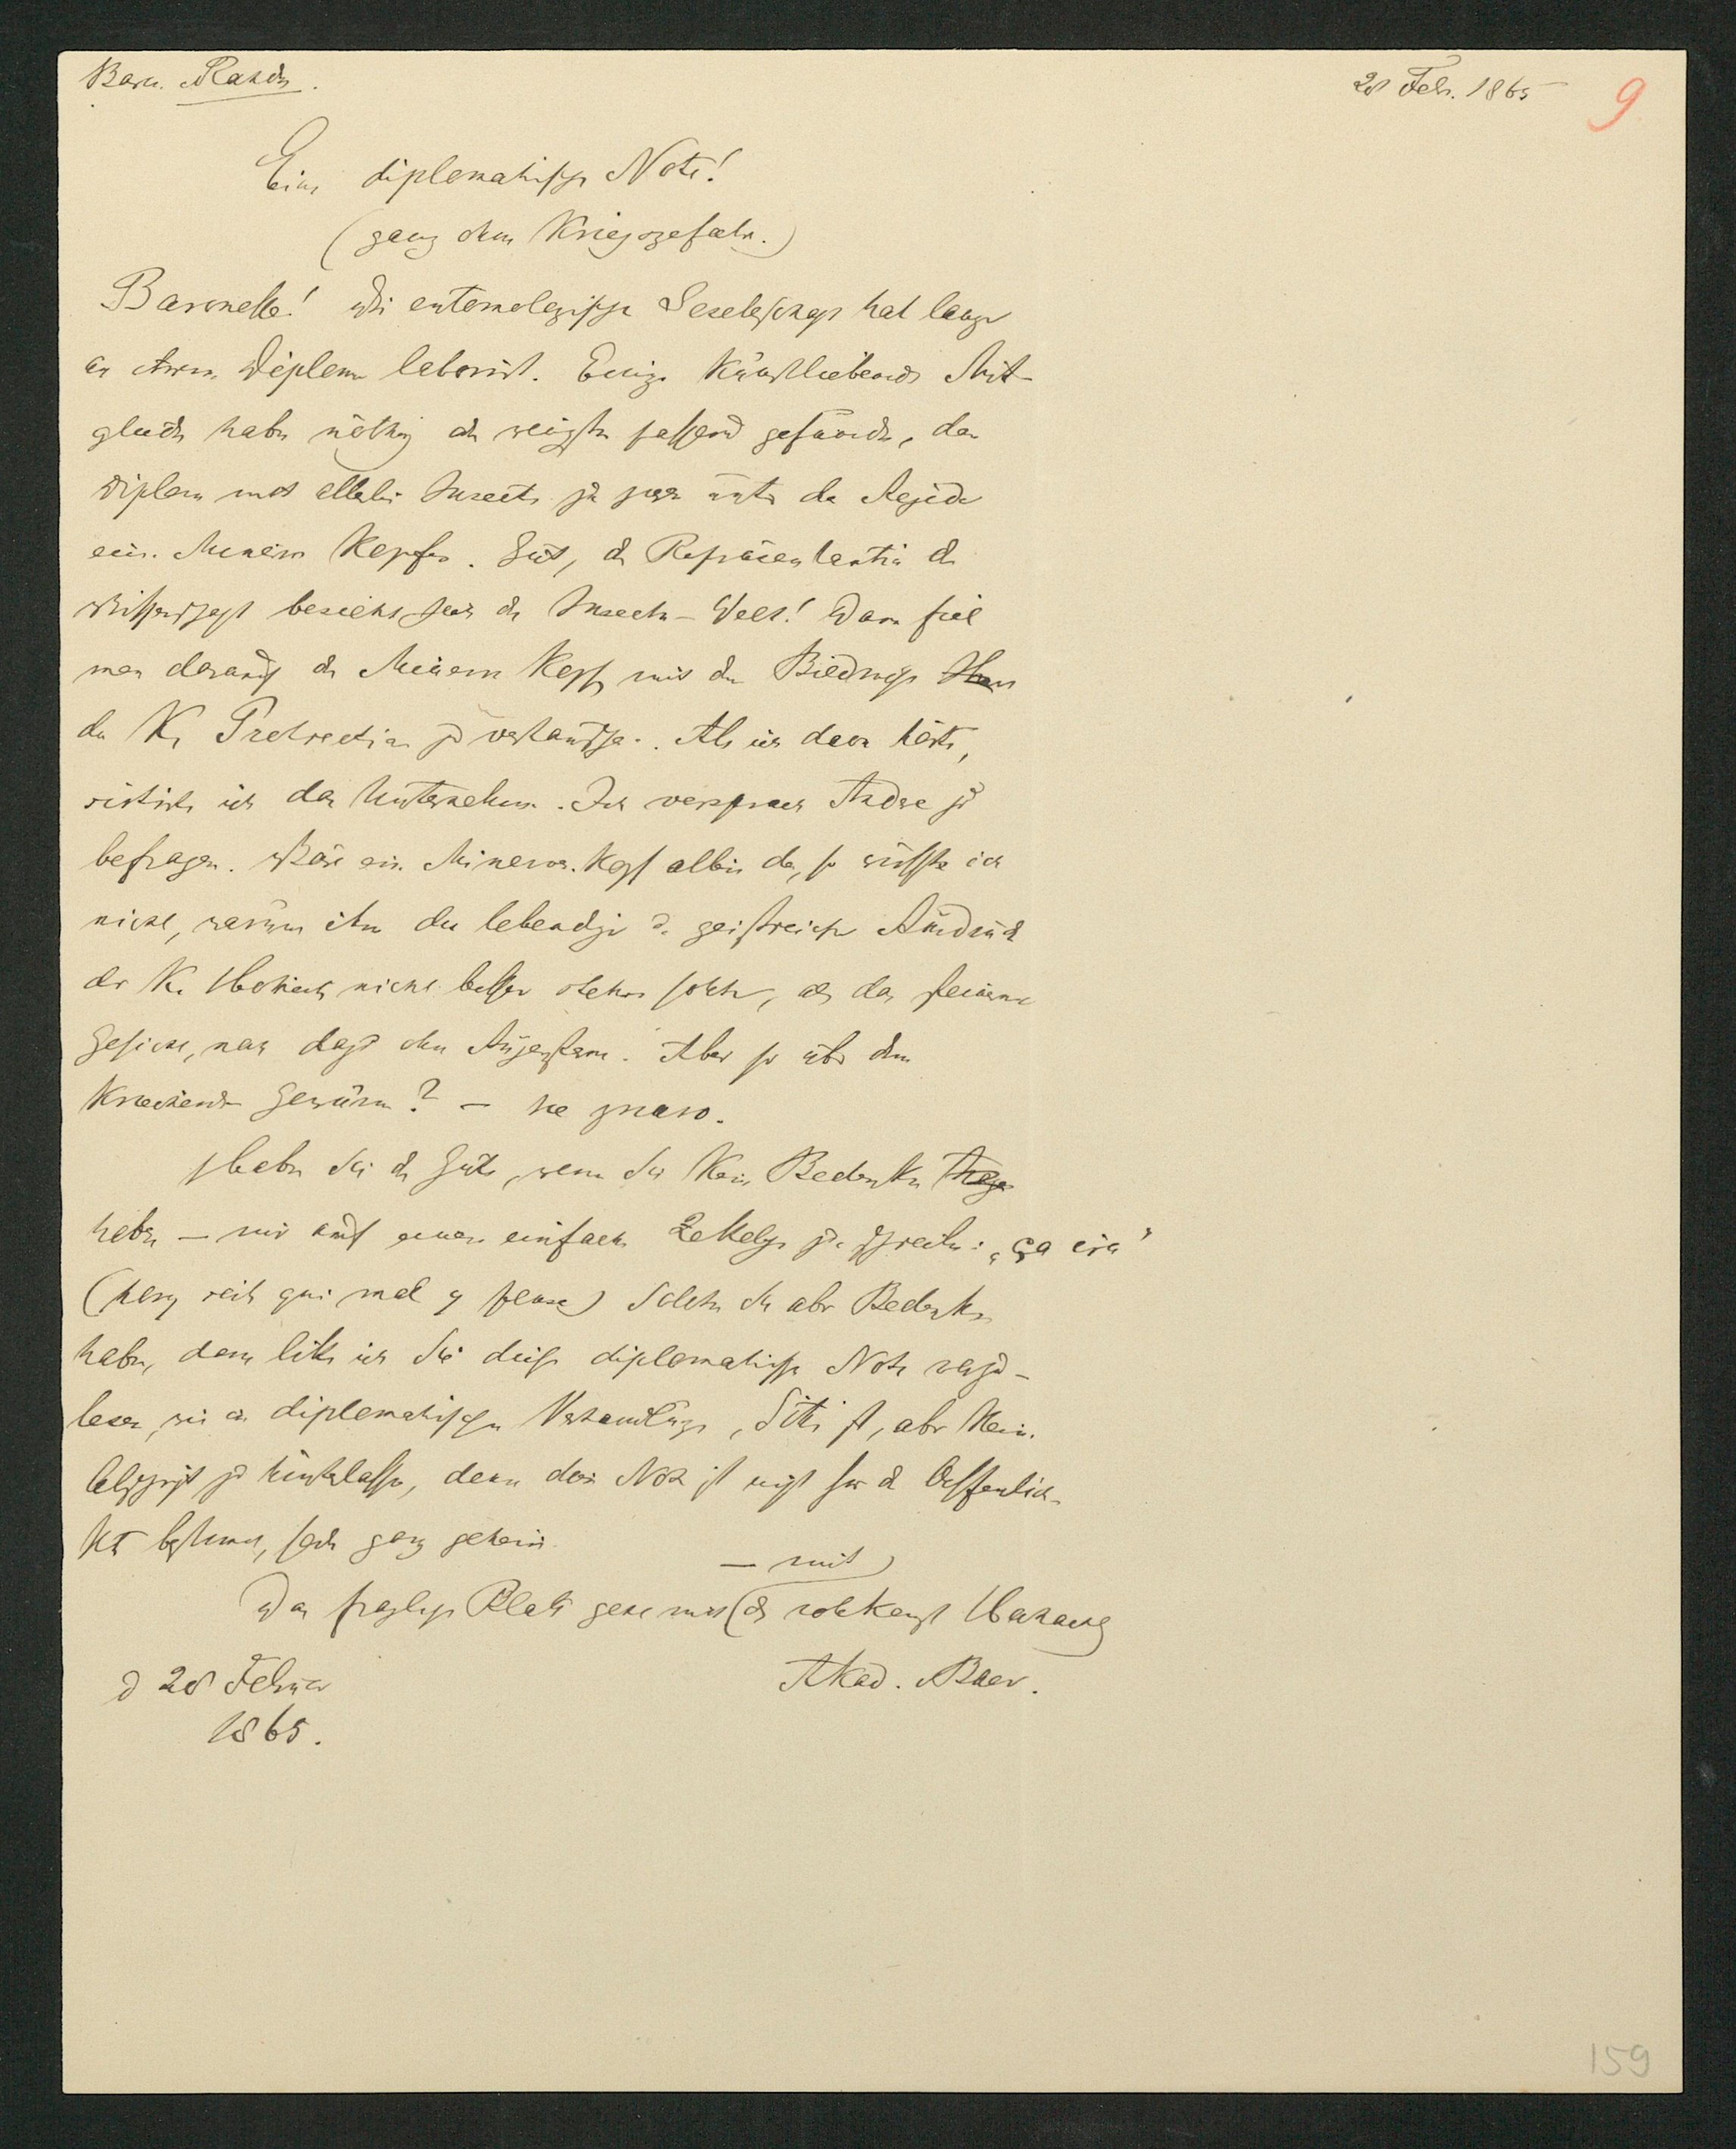 Baron. Rahden. 28 Feb. 1865 9
Eine diplomatische Note!
(ganz ohne Kriegsgefahr.)
Baronesse! Die entomologische Gesellschaft hat lange
an ihrem Diplom laborirt. Einige Kunstliebende Mit-
glieder haben nöthig oder wenigstens passend gefunden, das
Diplom mit allerlei Insecten zu unter der Aegide
eines Minerva Kopfes. Gut, die Repräsentantin der
Wissenschaft die Insecten-Welt! Dann fiel
man darauf den Minerva Kopf mit dem Bildnisse
der K. Protectrice zu vertauschen. Als ich davon hörte,
sistirte ich das Unternehmen. Ich versprach Andre zu
befragen. Wäre ein Minerva-Kopf allein da, so wüsste ich
nicht, warum ihn der lebendige u. geistreiche Ausdruck
der K. Hoheit nicht besser ersetzen sollte, als das steinerne
Gesicht, noch dazu ohne Augenstern. Aber so über dem
kriechenden Gewürm? — ne znaio.
Haben Sie die Güte, wenn Sie kein Bedenken
haben — mir auf einen einfachen Zettelchen zu schreiben: „ça ira"
(hony soit qui mal y pense) Sollten Sie aber Bedenken
haben, dann bitte ich Sie diese diplomatische Note vorzu-
lesen, wie in diplomatischen Verhandlungen Sitte ist, aber keine
Abschrift zu hinterlassen, denn diese Note ist nicht für die Oeffentlich-
keit bestimmt, sondern ganz geheim.
— mit
Das fragliche Blatt
d 28 Februar Akad. Baer.
1865.
159